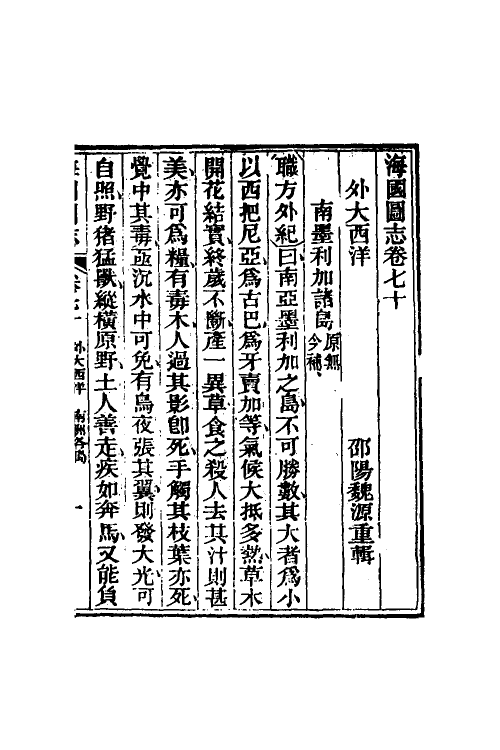 海國圖志卷七十
外大西洋　邵陽魏源重輯
南墨利加諸島原無今補
職方外紀曰南亞墨利加之島不可勝數其大者爲小
以西把尼亞爲古巴爲牙賣加等氣候大抵多熱草木
開花結實終歲不斷產一異草食之殺人去其汁則甚
美亦可爲糧有毒木人過其影卽死手觸其枝葉亦死
覺中其毒亟沉水中可免有鳥夜張其翼則發大光可
自照野猪猛獸縱橫原野土人善走疾如奔馬又能負
海國圖志　卷七十　外大西洋　南洲各島　一